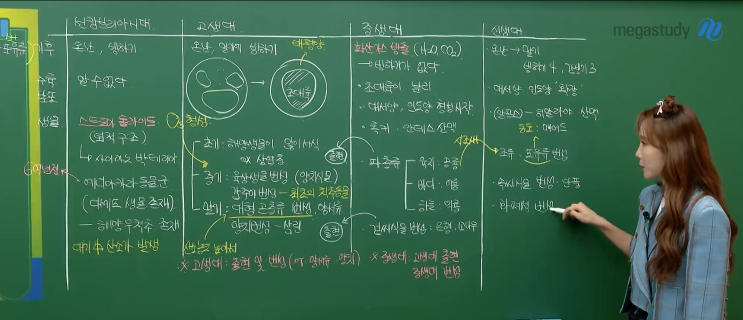 megastudy
선캄브리아시대
고생대
중생대
신생대
기후
온난, 빙하기
온난, 말기 빙하기
대양
초대륙
화산가스 방출 (H₂O, CO₂)
→ 빙하기가 없다.
· 온난 → 말기
빙하기 4, 간빙기 3
수륙
분포
알 수 없다
· 초대륙이 분리
· 대서양, 인도양 형성시작
· 록키, 안데스 산맥
· 대서양, 인도양 확장
· (알프스) - 히말라야 산맥
생물
스트로마톨라이트
(퇴적구조)
↳ 사이아노 박테리아
에디아카라 동물군
(다세포 생물 존재)
- 해양무척추 존재
대기 中 산소가 발생
O₃ 형성
초기 : 해양생물이 많이 서식
ex 삼엽충
중기 : 육상생물 번성 (양치식물)
갑주어 번성 - 최초의 척추동물
말기 : 대형 곤충류 번성, 양서류
양치번성 - 삼림
산소농도 높아서
출현
· 파충류
육지 : 공룡
바다 : 어룡
하늘 : 익룡
출현
· 겉씨식물 번성 : 은행, 소나무
시조새
· 조류 · 포유류 번성
· 속씨식물 번성 - 단풍
· 화폐석 번성
※ 고생대 : 출현 및 번성
※ 중생대 : 고생대 출현
중생대 번성